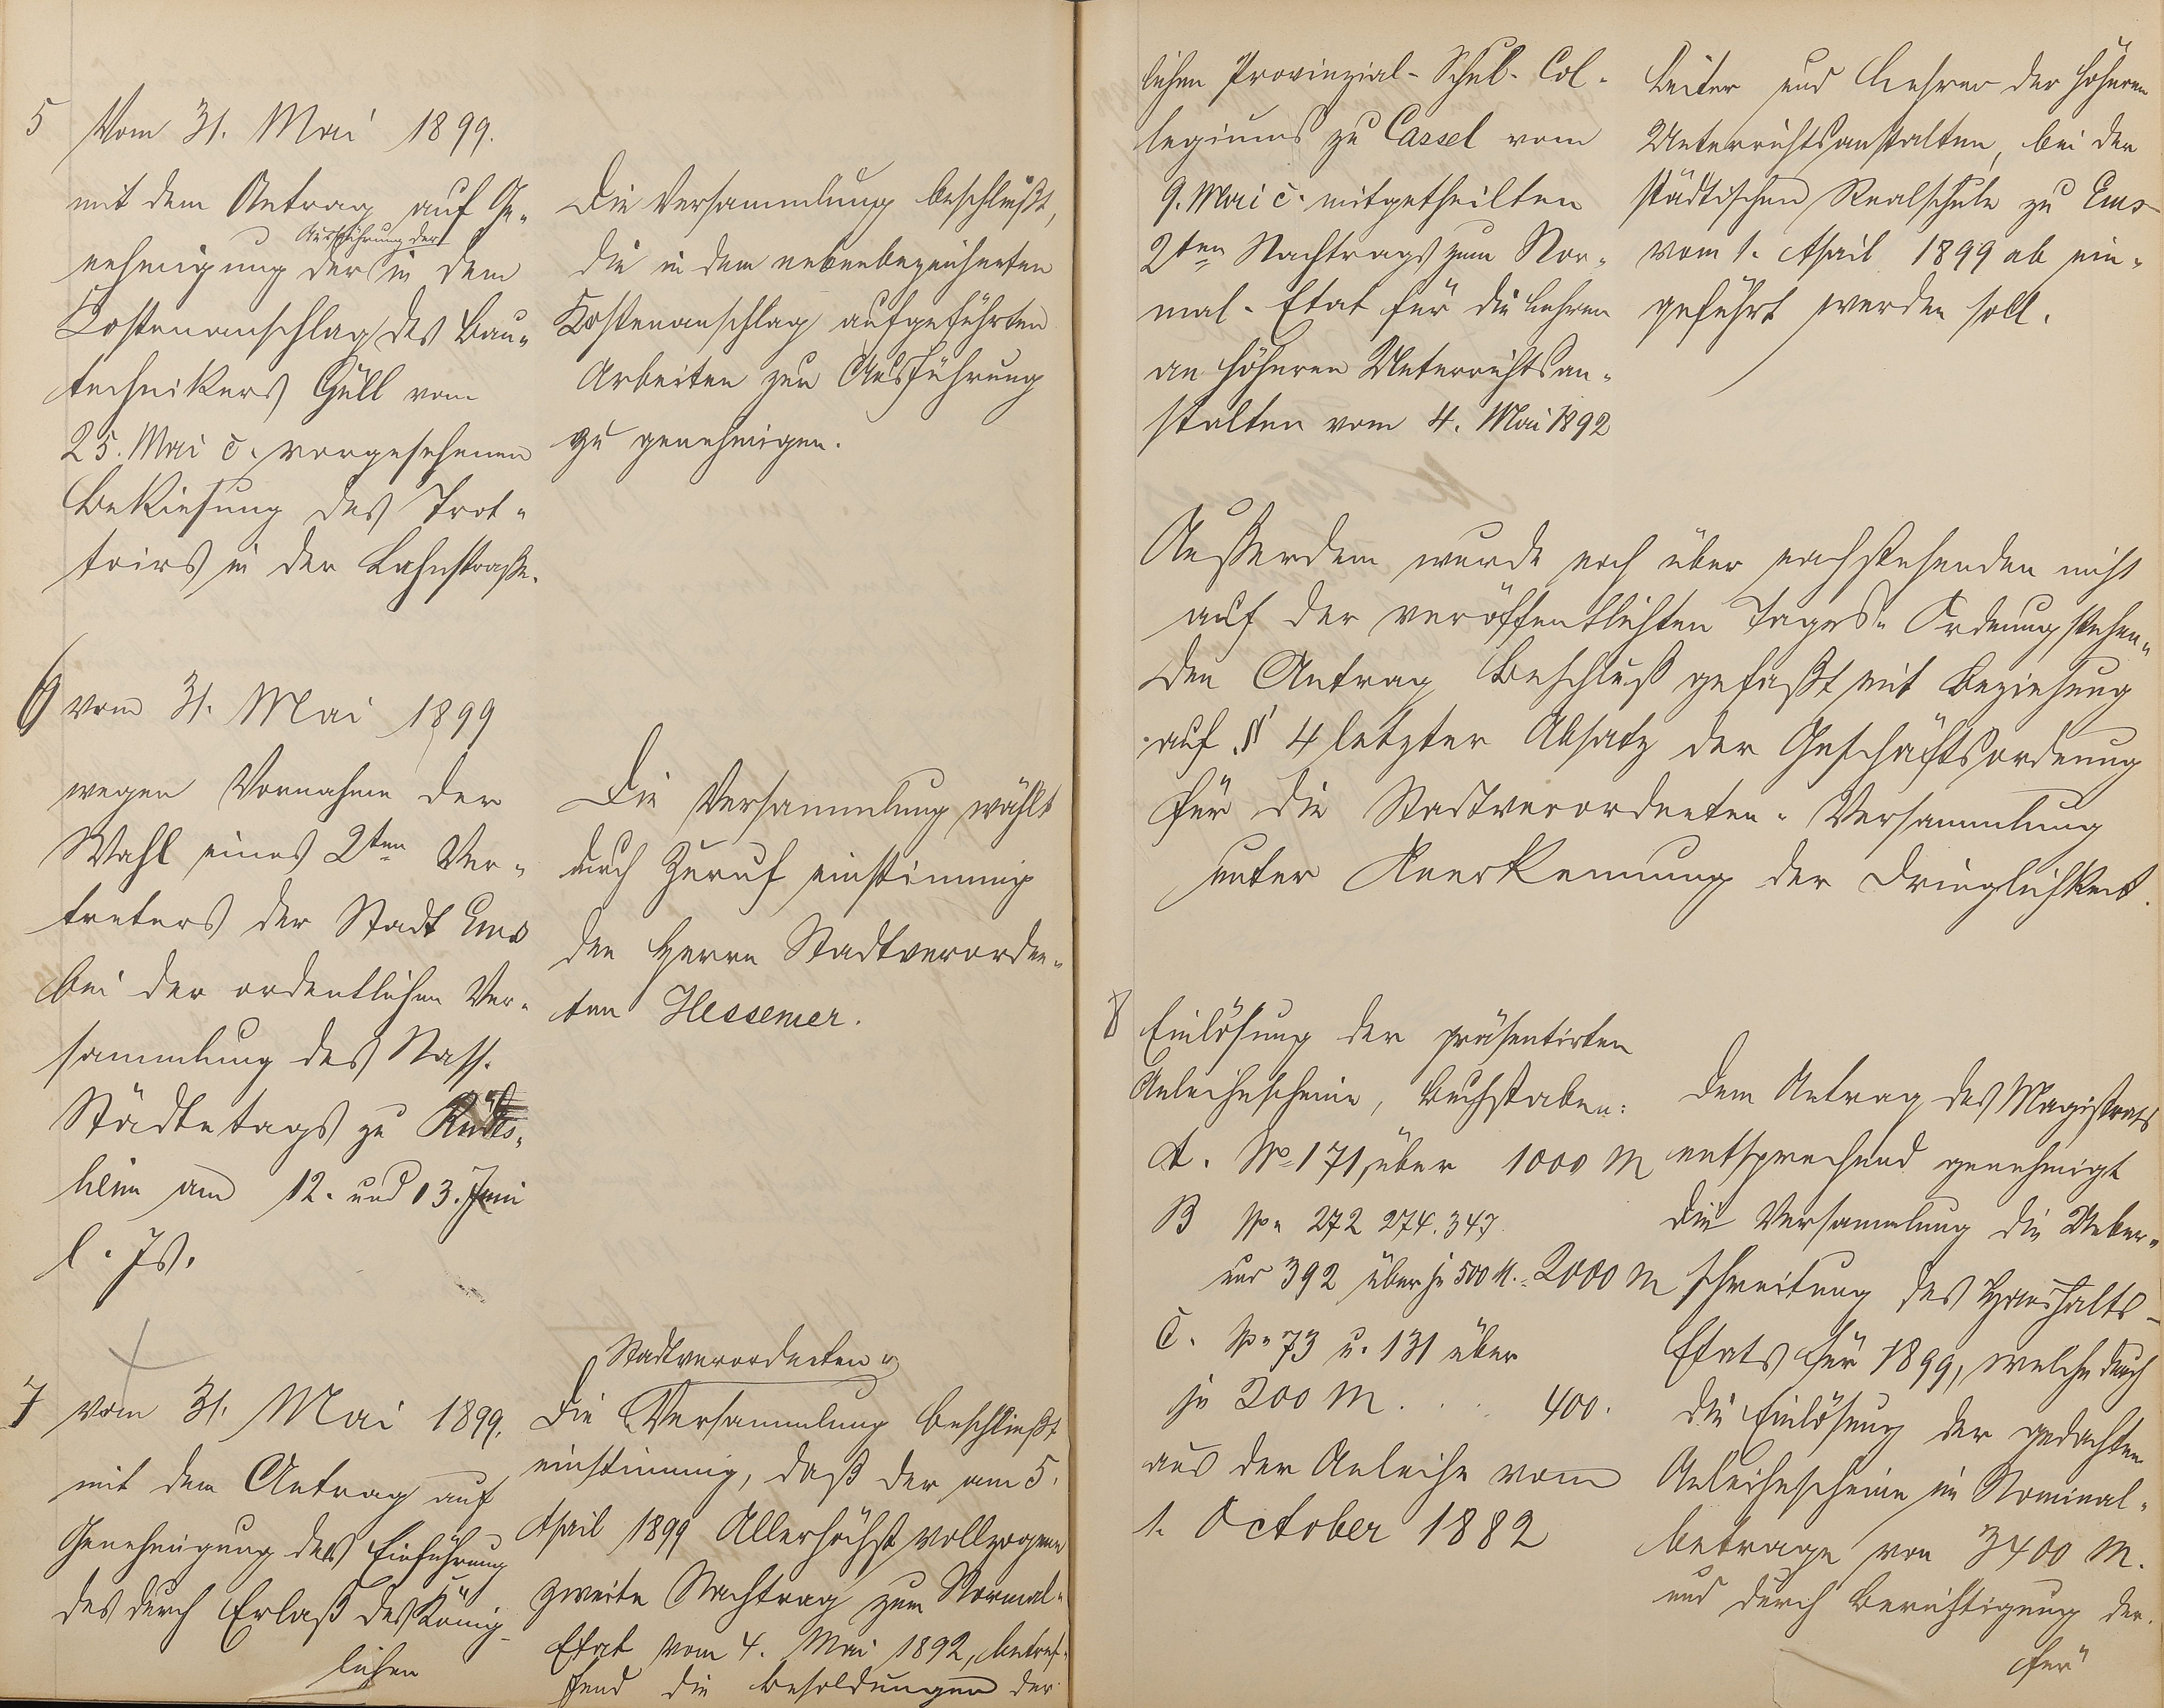 5 Vom 31. Mai 1899.
mit dem Antrag auf Ge-
Ausführung der
nehmigung der in dem
Kostenanschlag des Bau-
technikers Güll vom
25. Mai c. vorgesehenen
Bekiesung des Trot-
toirs in der Lahnstraße.
Die Versammlung beschließt,
die in dem nebenbezeichneten
Kostenanschlag aufgeführten
Arbeiten zur Ausführung
zu genehmigen.
6 vom 31. Mai 1899
wegen Vornahme der
Wahl eines 2ten Ver-
treters der Stadt Ems
bei der ordentlichen Ver-
sammlung des Nass.
Städtetags zu Rüdes-
heim am 12. und 13. Juni
l. Js.
Die Versammlung wählt
durch Zuruf einstimmig
den Herrn Stadtverordne-
ten Hessemer.
7 vom 31. Mai 1899.
mit dem Antrag auf
Genehmigung der Einführung
des durch Erlaß des König-
lichen
Stadtverordneten-
Die Versammlung beschließt
einstimmig, daß der am 5.
April 1899 Allerhöchst vollzogene
zweite Nachtrag zum Normal-
Etat vom 4. Mai 1892, betref-
fend die Besoldungen der
lichen Provinzial-Schul-Col-
legiums zu Cassel vom
9. Mai c. mitgetheilten
2ten Nachtrags zum Nor-
mal-Etat für die Lehrer
an höheren Unterrichtsan-
stalten vom 4. Mai 1892
Leiter und Lehrer der höheren
Unterrichtsanstalten, bei der
städtischen Realschule zu Ems
vom 1. April 1899 ab ein-
geführt werden soll.
Außerdem wurde noch über nachstehenden nicht
auf der veröffentlichten Tages-Ordnung stehen-
den Antrag Beschluß gefaßt mit Beziehung
auf § 4 letzter Absatz der Geschäftsordnung
für die Stadtverordneten-Versammlung
unter Anerkennung der Dringlichkeit.
8 Einlösung der präsentirten
Anleihescheine, Buchstaben:
A. No 171, über 1000 M
B No 272 274. 347
und 392 über je 500 M. 2000 M
C. No 73 u. 131 über
je 200 M . . . 400.
aus der Anleihe vom
1. October 1882
Dem Antrag des Magistrats
entsprechend genehmigt
die Versammlung die Ueber-
schreitung des Haushalts-
Etats für 1899, welche durch
die Einlösung der gedachten
Anleihescheine im Nominal-
betrage von 3400 M.
und durch Berichtigung der
für